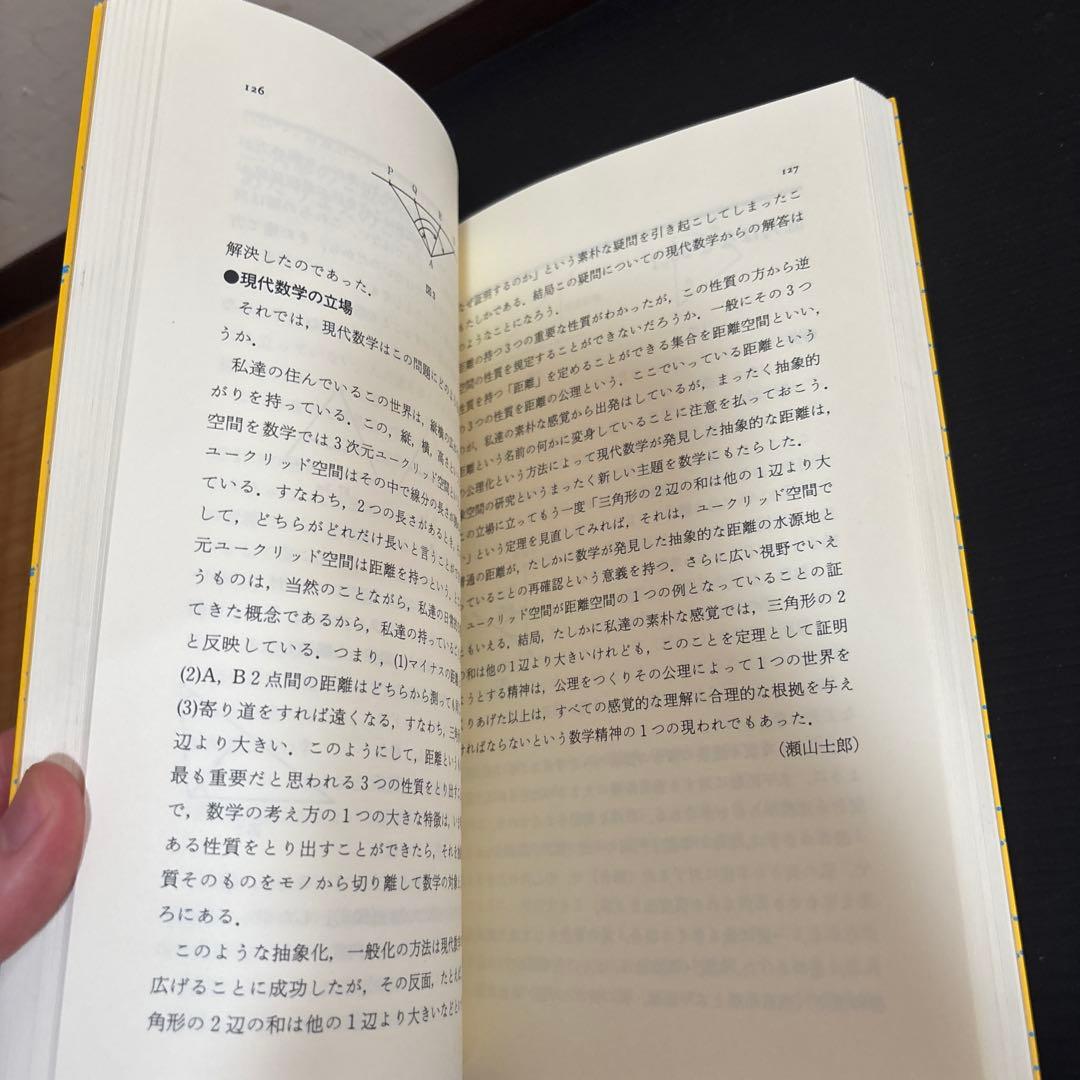 126
P
Q
R
A
図3
解決したのであった．
●現代数学の立場
それでは，現代数学はこの問題にどの
うか．
私達の住んでいるこの世界は，縦横の広
がりを持っている．この，縦，横，高さ
空間を数学では3次元ユークリッド空間と
ユークリッド空間はその中で線分の長さが
ている．すなわち，2つの長さがあるとき，
して，どちらがどれだけ長いと言うことが
元ユークリッド空間は距離を持つという．
うものは，当然のことながら，私達の日常
てきた概念であるから，私達の持っている
と反映している．つまり，(1)マイナスの距離
(2)A，B2点間の距離はどちらから測っても
(3)寄り道をすれば遠くなる，すなわち，三角
辺より大きい．このようにして，距離という
最も重要だと思われる3つの性質をとり出す
で，数学の考え方の1つの大きな特徴は，
ある性質をとり出すことができたら，それを
質そのものをモノから切り離して数学の対象
ろにある．
このような抽象化，一般化の方法は現代数学
広げることに成功したが，その反面，たとえば
角形の2辺の和は他の1辺より大きいなどと
127
なぜ証明するのか」という素朴な疑問を引き起こしてしまったこ
もたしかである．結局この疑問についての現代数学からの解答は
のようなことになろう．
距離の持つ3つの重要な性質がわかったが，この性質の方から逆
空間の性質を規定することができないだろうか．一般にその3つ
性質を持つ「距離」を定めることができる集合を距離空間といい，
の3つの性質を距離の公理という．ここでいっている距離という
が，私達の素朴な感覚から出発はしているが，まったく抽象的
距離という名前の何かに変身していることに注意を払っておこう．
の公理化という方法によって現代数学が発見した抽象的な距離は，
象空間の研究というまったく新しい主題を数学にもたらした．
の立場に立ってもう一度「三角形の2辺の和は他の1辺より大
い」という定理を見直してみれば，それは，ユークリッド空間で
普通の距離が，たしかに数学が発見した抽象的な距離の水源地と
っていることの再確認という意義を持つ．さらに広い視野でいえ
ユークリッド空間が距離空間の1つの例となっていることの証
ともいえる．結局，たしかに私達の素朴な感覚では，三角形の2
の和は他の1辺より大きいけれども，このことを定理として証明
ようとする精神は，公理をつくりその公理によって1つの世界を
くりあげた以上は，すべての感覚的な理解に合理的な根拠を与え
ければならないという数学精神の1つの現われでもあった．
（瀬山士郎）